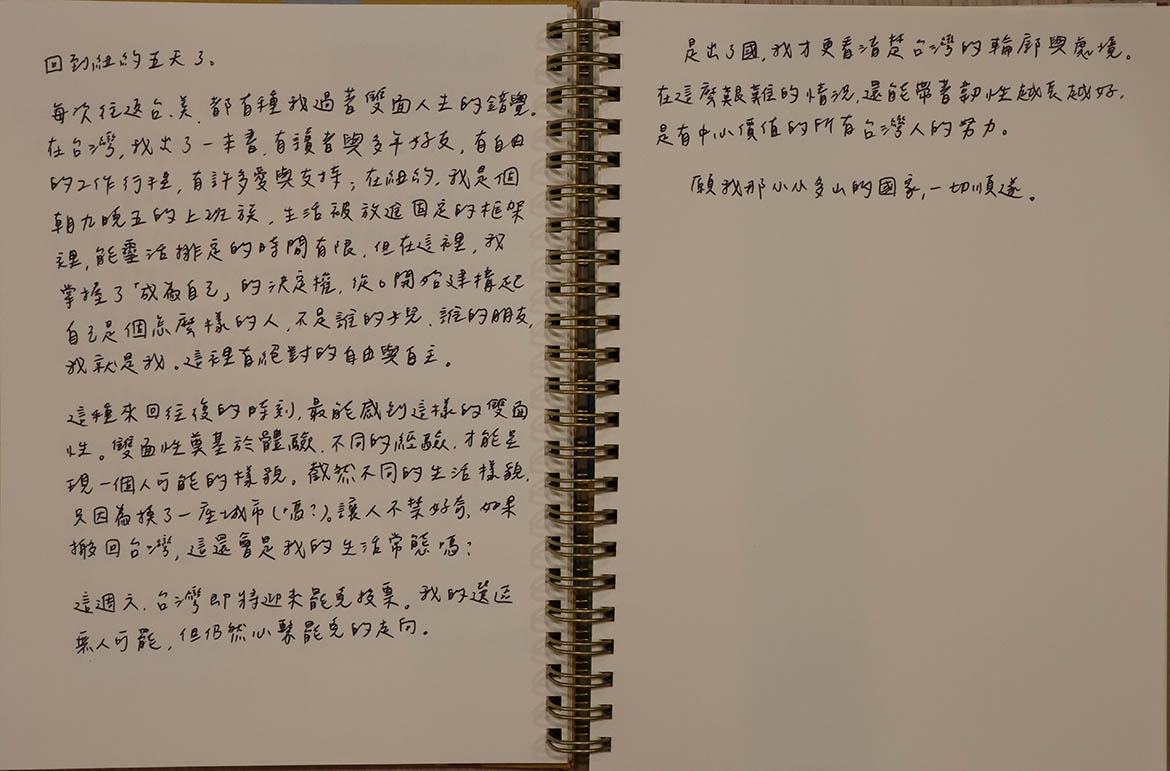 回到紐約五天了。
每次往返台、美,都有種我過著雙面人生的錯覺。
在台灣,我出了一本書,有讀者與多年好友,有自由
的工作行程,有許多愛與支持;在紐約,我是個
朝九晚五的上班族,生活被放進固定的框架
裡,能靈活排定的時間有限,但在這裡,我
掌握了「成為自己」的決定權,從0開始建構起
自己是個怎麼樣的人,不是誰的女兒、誰的朋友,
我就是我。這裡有絕對的自由與自主。
這種來回往復的時刻,最能感到這樣的雙面
性。雙面性奠基於體驗,不同的經驗,才能呈
現一個人可能的樣貌。截然不同的生活樣貌,
只因為換了一座城市(嗎?)。讓人不禁好奇,如果
搬回台灣,這還會是我的生活常態嗎?
這週六,台灣即將迎來罷免投票。我的選區
無人可罷,但仍然心繫罷免的走向。
是出了國,我才更看清楚台灣的輪廓與處境。
在這麼艱難的情況,還能帶著韌性越長越好,
是有中心價值的所有台灣人的努力。
願我那小小多山的國家,一切順遂。